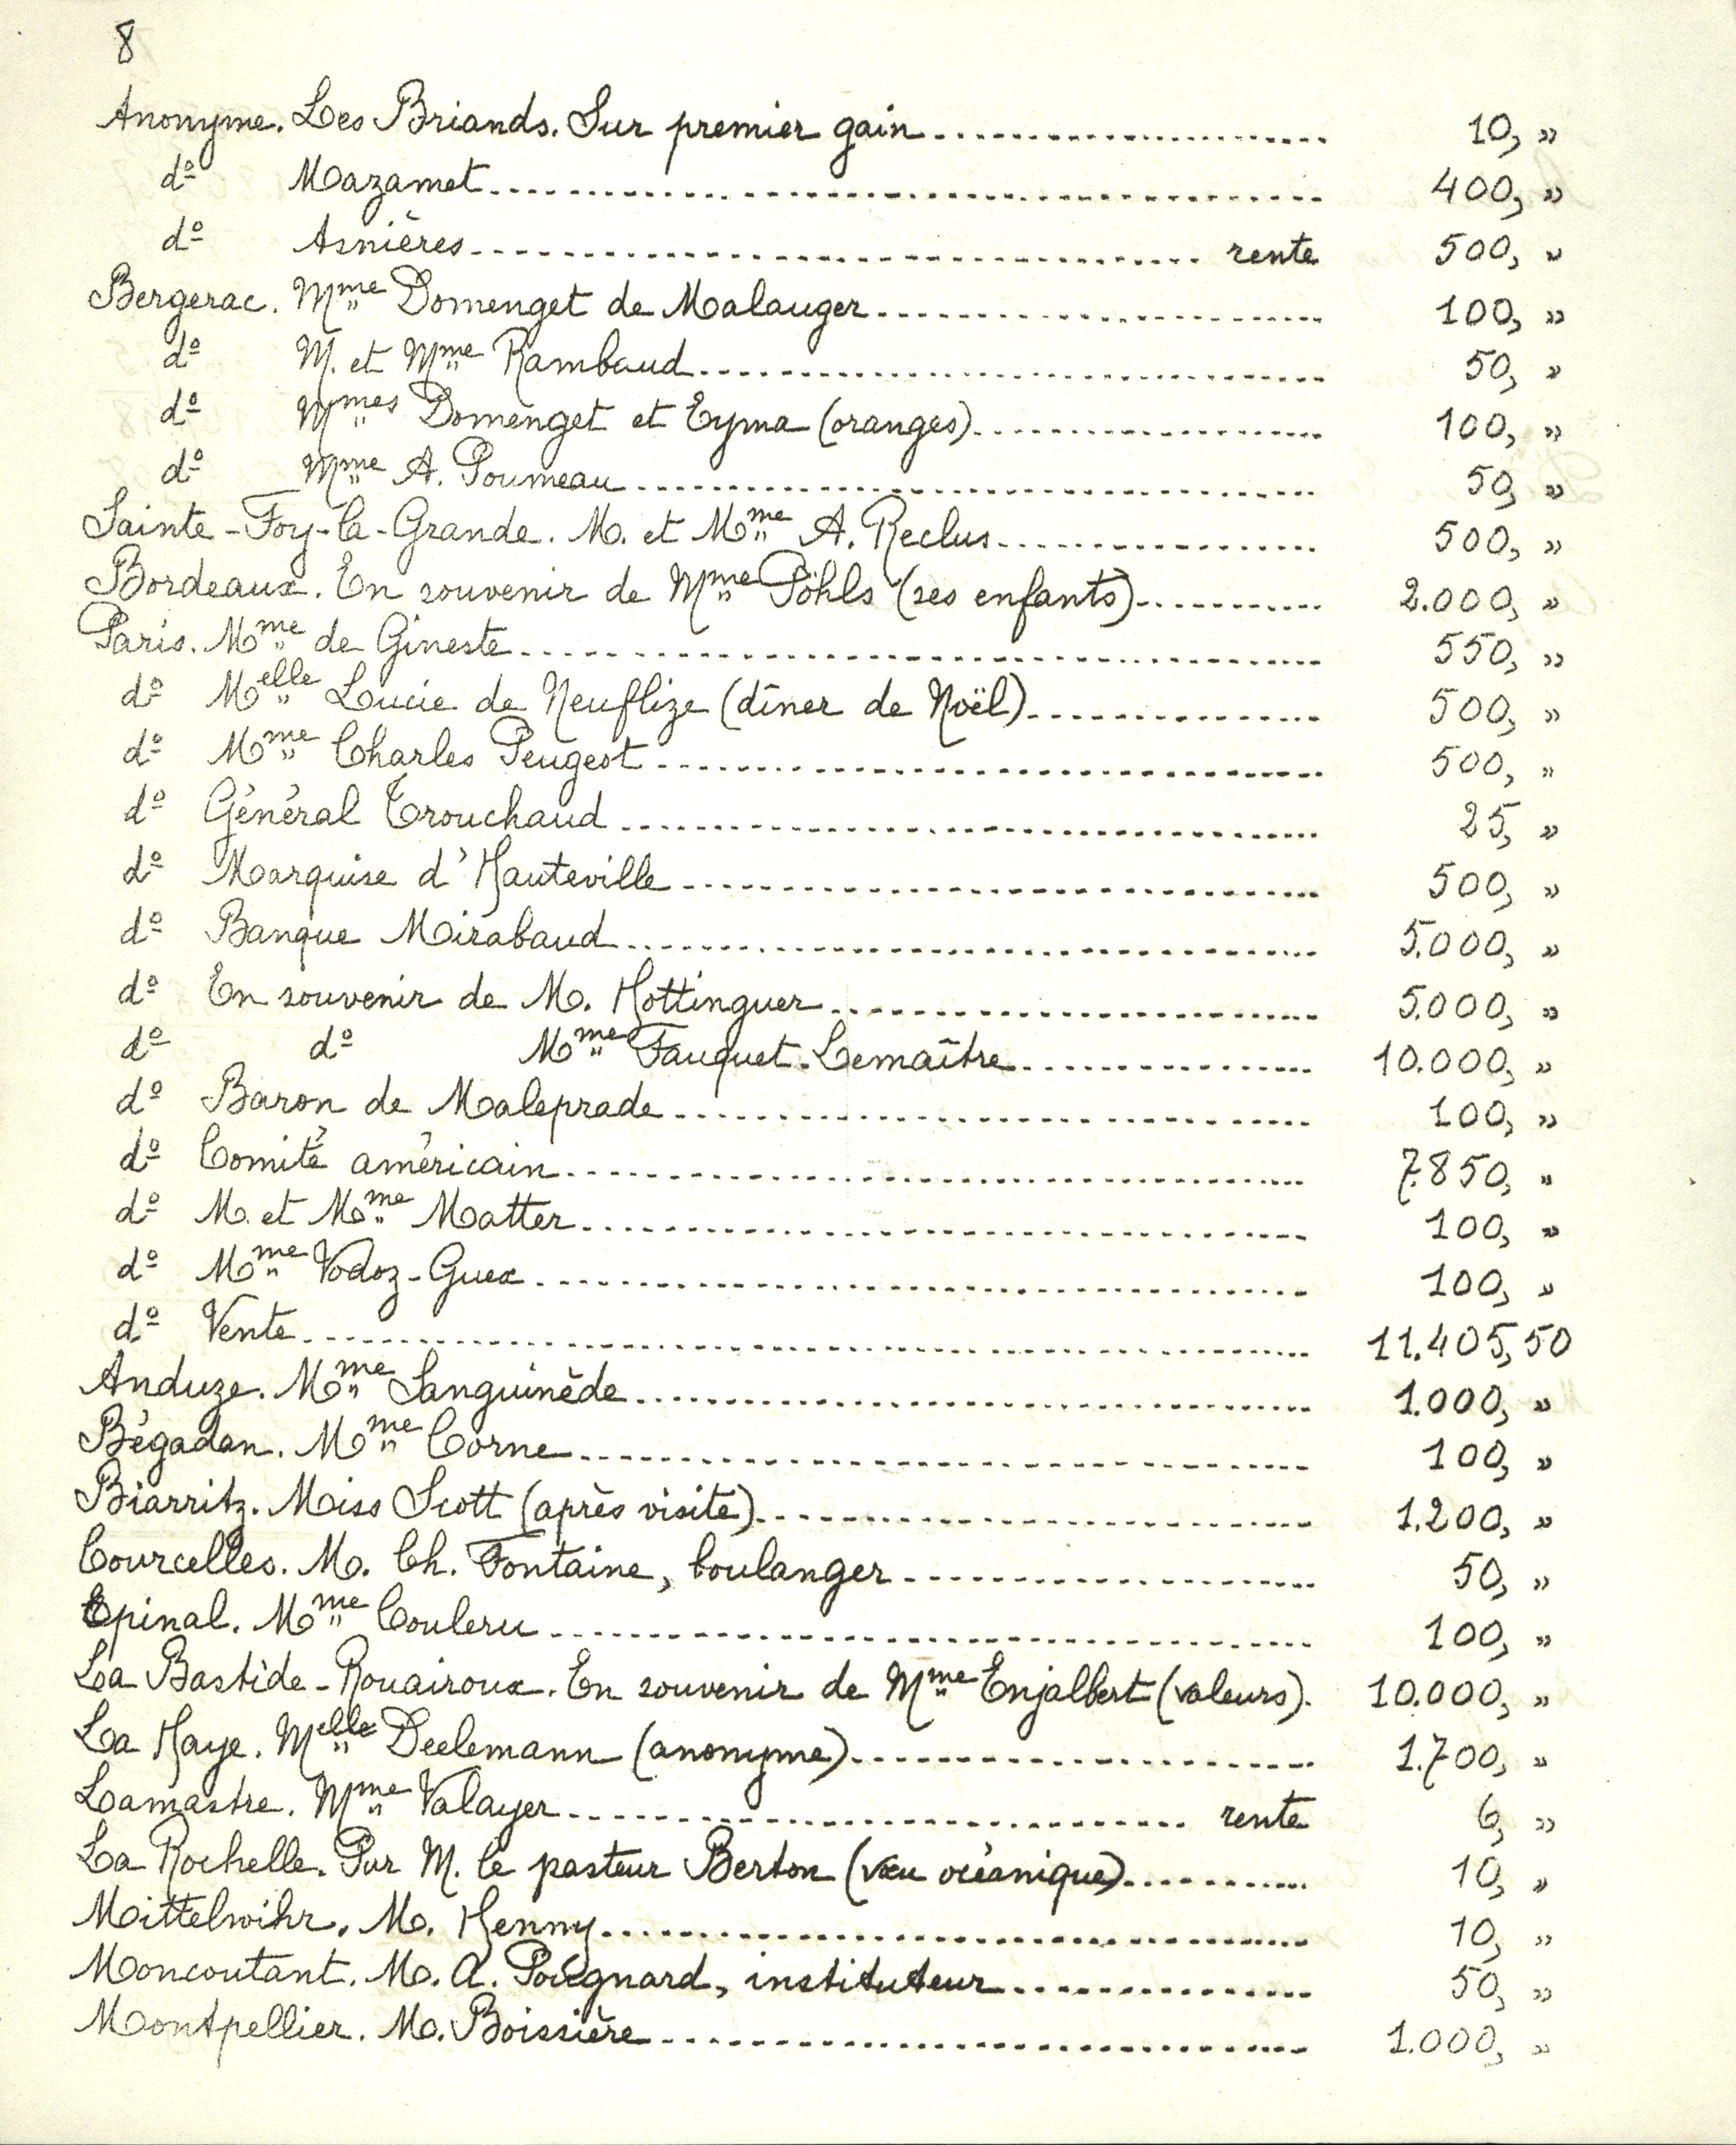 8
Anonyme. Les Briands. Sur premier gain 10, "
d° Mazamet 400, "
d° Asnières rente 500, "
Bergerac. Mme Domenget de Malauger 100, "
d° M. et Mme Rambaud 50, "
d° Mmes Domenget et Eyma (oranges) 100, "
d° Mme A. Poumeau 50, "
Sainte-Foy-la-Grande. M. et Mme A. Reclus 500, "
Bordeaux. En souvenir de Mme Pöhls (ses enfants) 2.000, "
Paris. Mme de Gineste 550, "
d° Melle Lucie de Neuflize (dîner de Noël) 500, "
d° Mme Charles Peugeot 500, "
d° Général Trouchaud 25, "
d° Marquise d'Hauteville 500, "
d° Banque Mirabaud 5.000, "
d° En souvenir de M. Hottinguer 5.000, "
d° d° Mme Fauquet-Lemaître 10.000, "
d° Baron de Maleprade 100, "
d° Comité américain 7.850, "
d° M. et Mme Matter 100, "
d° Mme Vodoz-Guex 100, "
d° Vente 11.405,50
Anduze. Mme Sanguinède 1.000, "
Bégadan. Mme Corne 100, "
Biarritz. Miss Scott (après visite) 1.200, "
Courcelles. M. Ch. Fontaine, boulanger 50, "
Epinal. Mme Couleru 100, "
La Bastide-Rouairoux. En souvenir de Mme Enjalbert (valeurs). 10.000, "
La Haye. Melle Deelemann (anonyme) 1.700, "
Lamastre. Mme Valayer rente 6, "
La Rochelle. Pur M. le pasteur Berton (vœu océanique) 10, "
Mittelwihr. M. Henny 10, "
Moncoutant. M. A. Pouignard, instituteur 50, "
Montpellier. M. Boissière 1.000, "